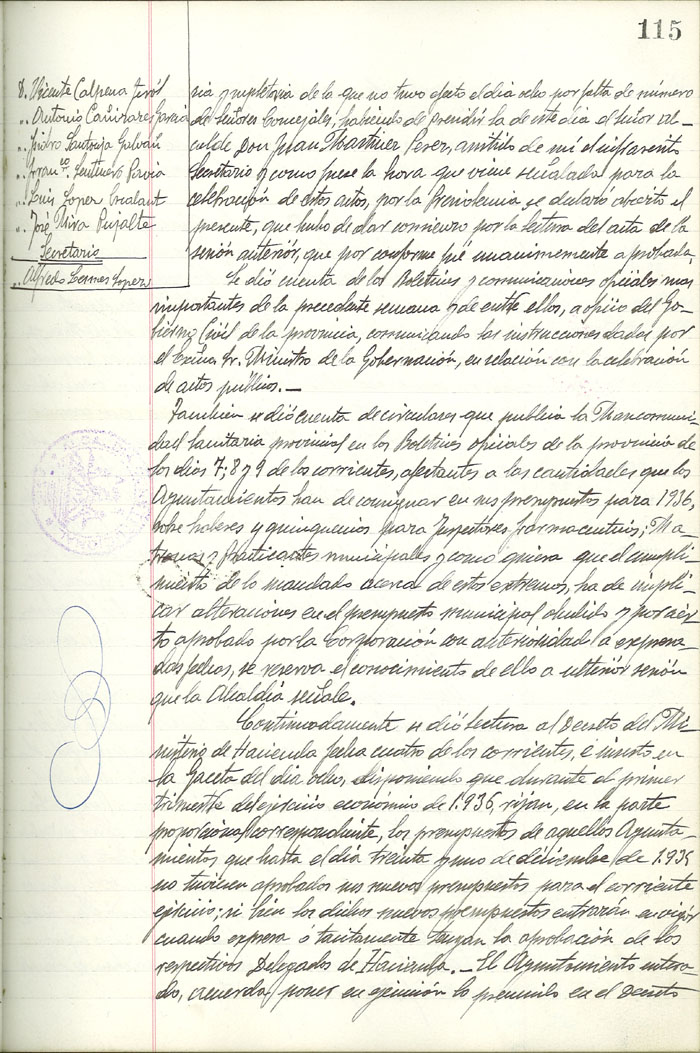 115
D. Vicente Calpena Jeról
.. Antonio Cañizares García
.. Isidro Santonja Galvañ
.. Fran.co Centenero Pavia
.. Luis Lopez
.. José Riva Pujalte
Secretario
.. Alfredo Lopez
ria supletoria de la que no tuvo efecto el dia ocho por falta de número
de señores Concejales, habiendo de presidir la de este dia el señor al-
calde Don Juan Martinez Perez, asistido de mí el infrascrito
Secretario y como fuese la hora que viene señalada para la
celebración de estos actos, por la Presidencia se declaró abierto el
presente, que hubo de dar comienzo por la lectura del acta de la
sesión anterior, que por conforme fué unanimemente aprobada.
Se dió cuenta de los Boletines y comunicaciones oficiales mas
importantes de la precedente semana y de entre ellos, a oficio del Go-
bierno Civil de la provincia, comunicando las instrucciones dadas por
el Exmo. Sr. Ministro de la Gobernación, en relación con la celebración
de actos publicos. —
Tambien se dió cuenta de circulares que publica la Mancomuni-
dad Sanitaria provincial en los Boletines oficiales de la provincia de
los dias 7, 8 y 9 de los corrientes, afectantes a las cantidades que los
Ayuntamientos han de consignar en sus presupuestos para 1936,
sobre haberes y quinquenios para Inspectores farmaceuticos, Ma-
tronas y Practicantes municipales y como quiera que el cumpli-
miento de lo mandado acerca de estos extremos, ha de impli-
car alteraciones en el presupuesto municipal aludido y por cier-
to aprobado por la Corporación con anterioridad a expresa-
das fechas, se reserva el conocimiento de ello a ulterior sesión
que la Alcaldia señale.
Continuadamente se dió lectura al Decreto del Mi-
nisterio de Hacienda fecha cuatro de los corrientes, é inserto en
la Gaceta del dia ocho, disponiendo que durante el primer
trimestre del ejercicio económico de 1.936 rijan, en la parte
proporcional correspondiente, los presupuestos de aquellos Ayunta-
mientos que hasta el dia treinta y uno de diciembre de 1.935
no tuviesen aprobados sus nuevos presupuestos para el corriente
ejercicio; si bien los dichos nuevos presupuestos entrarán en vigor
cuando expresa ó tacitamente tengan la aprobación de los
respectivos Delegados de Hacienda. — El Ayuntamiento entera-
do, acuerda poner en ejecución lo prevenido en el Decreto